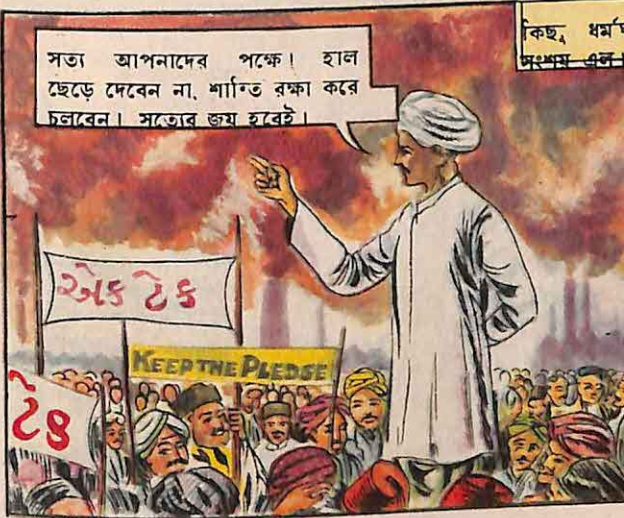 সত্য আপনাদের পক্ষে! হাল
ছেড়ে দেবেন না, শান্তি রক্ষা করে
চলবেন। সত্যের জয় হবেই।
কিছু ধর্ম
সংশয় এল।
એક ટેક
KEEP THE PLEDGE
ટેક